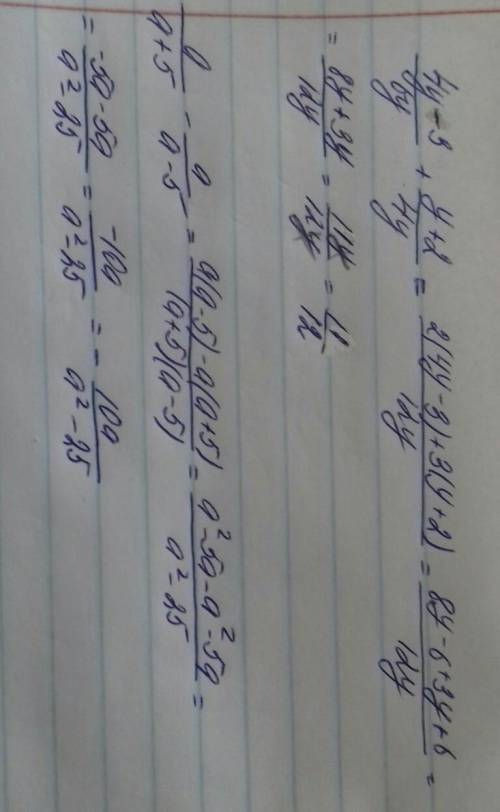 (4y-3)/(6y) + (y+2)/(4y) = (2(4y-3)+3(y+2))/(12y) = (8y-6+3y+6)/(12y) =
= (8y+3y)/(12y) = (11y)/(12y) = 11/12
a/(a+5) - a/(a-5) = (a(a-5)-a(a+5))/((a+5)(a-5)) = (a²-5a-a²-5a)/(a²-25) =
= (-5a-5a)/(a²-25) = (-10a)/(a²-25) = - (10a)/(a²-25)